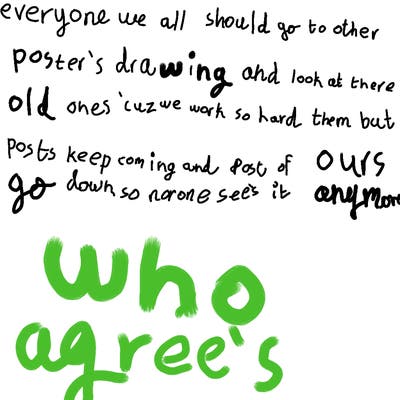 everyone we all should go to other
poster's drawing and look at there
old ones 'cuz we work so hard them but
posts keep coming and post of ours
go down so norone see's it anymore
who
agree's